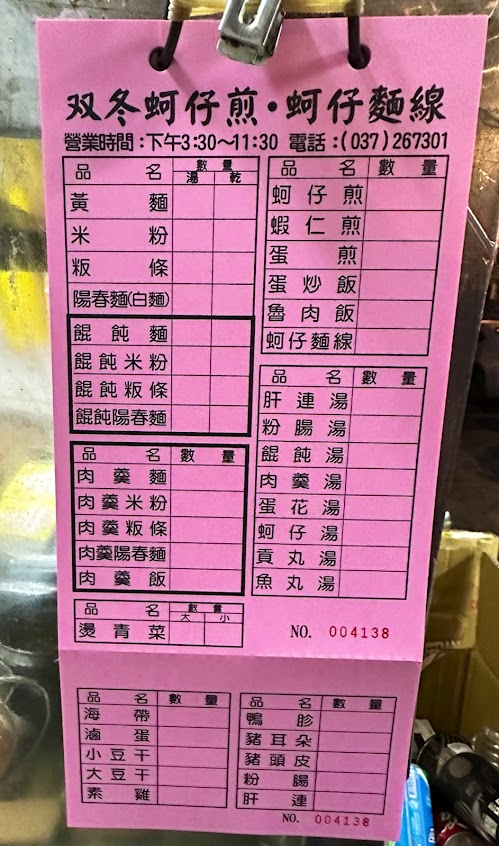 双冬蚵仔煎·蚵仔麵線
營業時間:下午3:30~11:30 電話:(037)267301
品名 數量
湯 乾
黃麵
米粉
粄條
陽春麵(白麵)
餛飩麵
餛飩米粉
餛飩粄條
餛飩陽春麵
品名 數量
肉羹麵
肉羹米粉
肉羹粄條
肉羹陽春麵
肉羹飯
品名 數量
大 小
燙青菜
品名 數量
蚵仔煎
蝦仁煎
蛋煎
蛋炒飯
魯肉飯
蚵仔麵線
品名 數量
肝連湯
粉腸湯
餛飩湯
肉羹湯
蛋花湯
蚵仔湯
貢丸湯
魚丸湯
NO. 004138
品名 數量
海帶
滷蛋
小豆干
大豆干
素雞
品名 數量
鴨胗
豬耳朵
豬頭皮
粉腸
肝連
NO. 004138